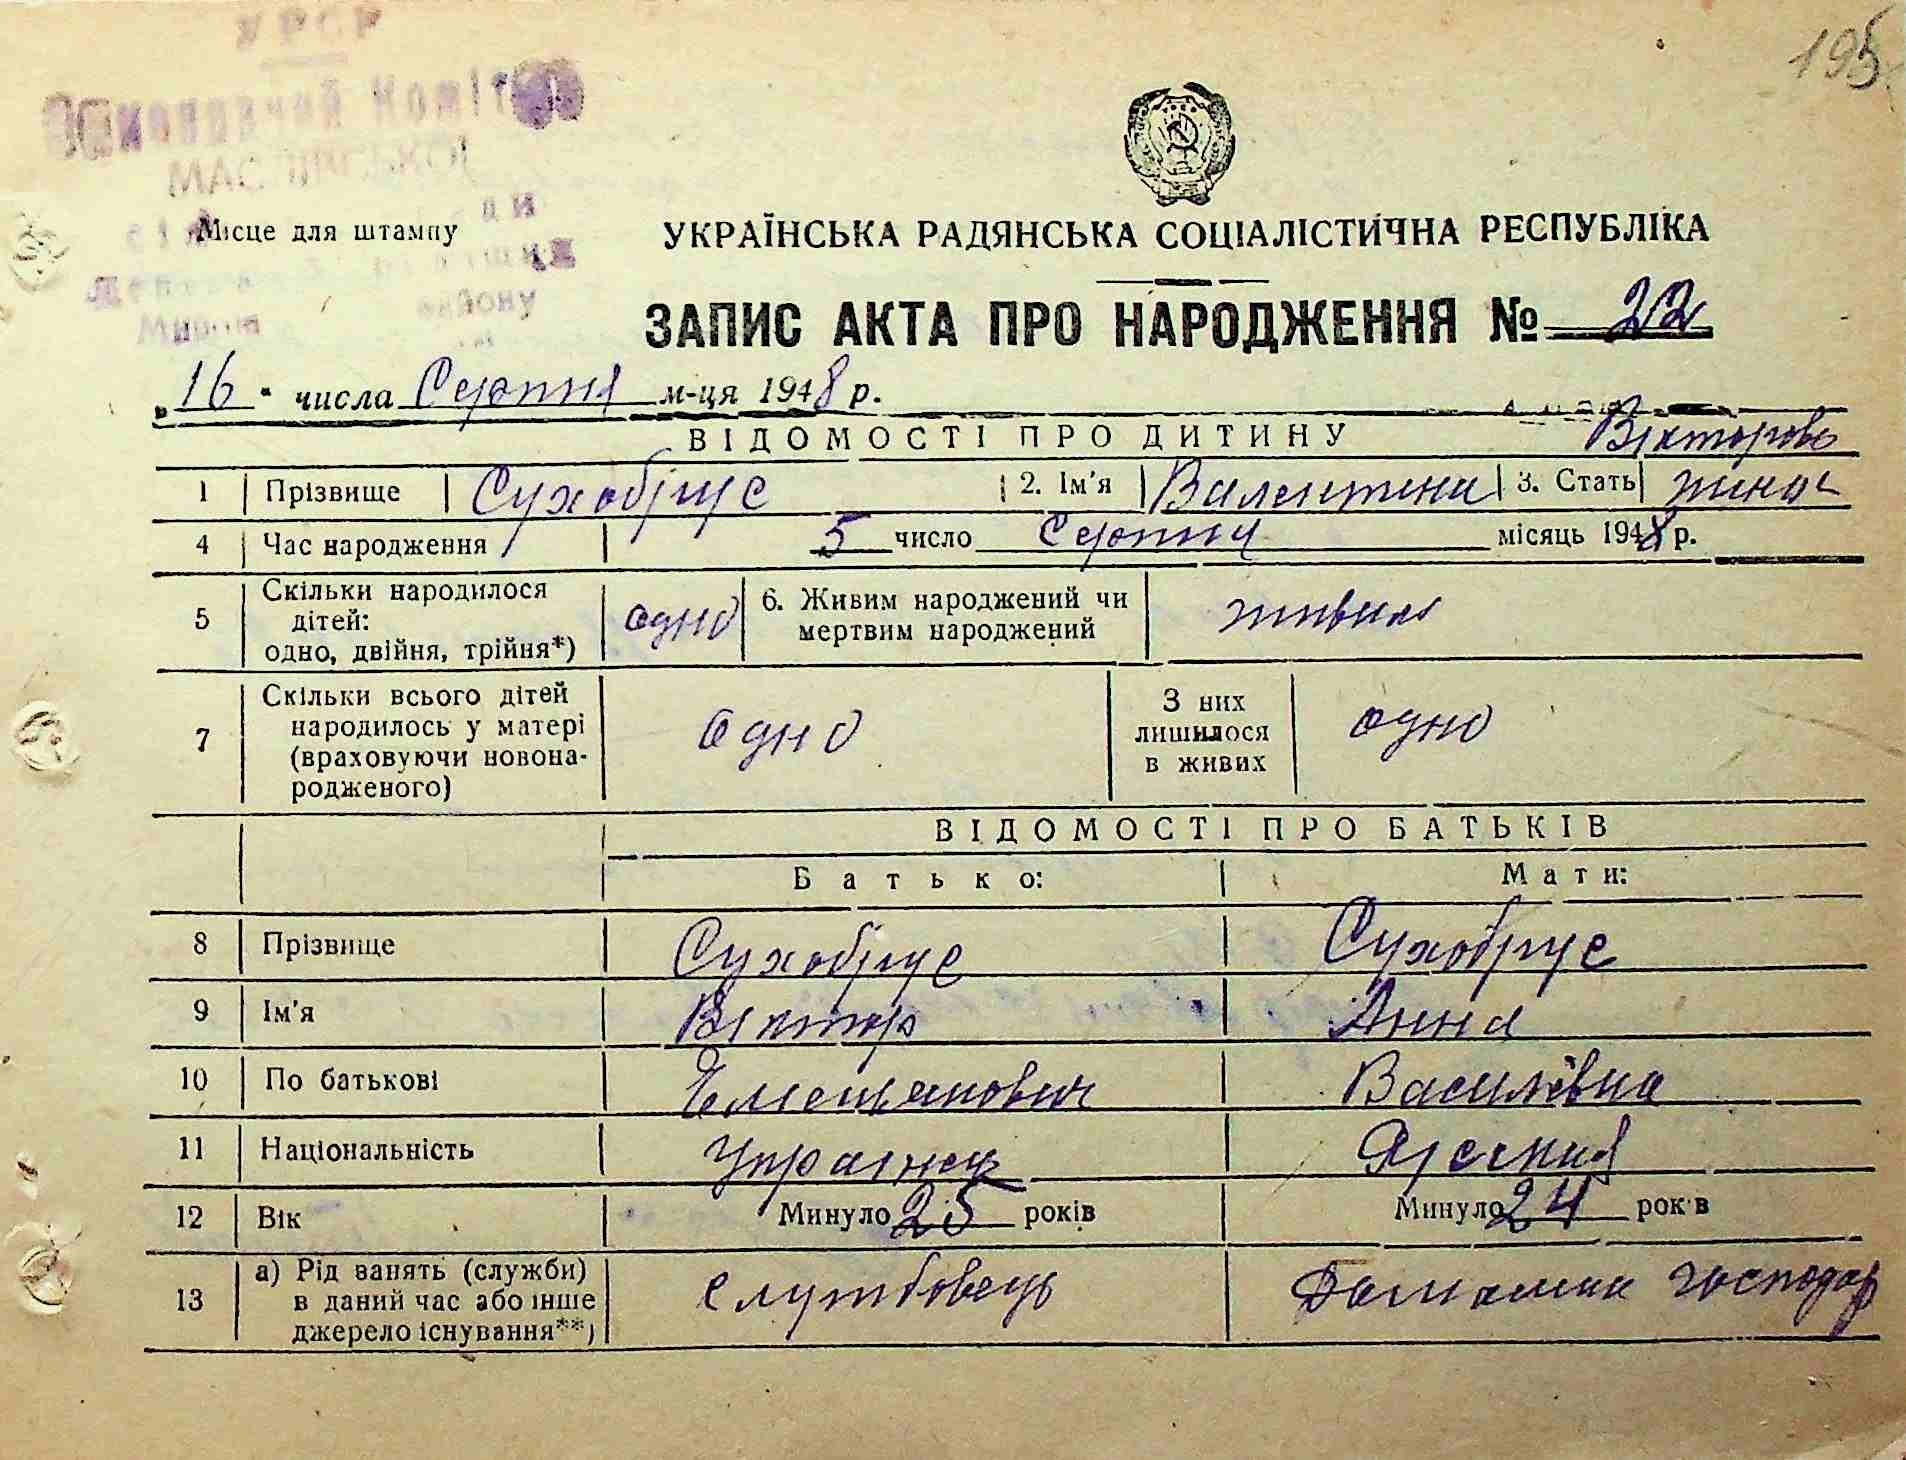 195
УРСР
Виконавчий Коміт
МАС
Місце для штампу
району
УКРАЇНСЬКА РАДЯНСЬКА СОЦІАЛІСТИЧНА РЕСПУБЛІКА
ЗАПИС АКТА ПРО НАРОДЖЕННЯ № 22
„16" числа Серпня м-ця 1948 р.
ВІДОМОСТІ ПРО ДИТИНУ Вікторовн
1 Прізвище Сухобрус 2. Ім'я Валентина 3. Стать жіноч
4 Час народження 5 число Серпня місяць 1948 р.
5 Скільки народилося дітей: одно, двійня, трійня*) одно 6. Живим народжений чи мертвим народжений живим
7 Скільки всього дітей народилось у матері (враховуючи новонародженого) одно З них лишилося в живих одно
ВІДОМОСТІ ПРО БАТЬКІВ
Батько: Мати:
8 Прізвище Сухобрус Сухобрус
9 Ім'я Віктор Анна
10 По батькові Емельянович Василівна
11 Національність Українець
12 Вік Минуло 25 років Минуло 24 років
13 а) Рід занять (служби) в даний час або інше джерело існування**) службовець Домашня господар